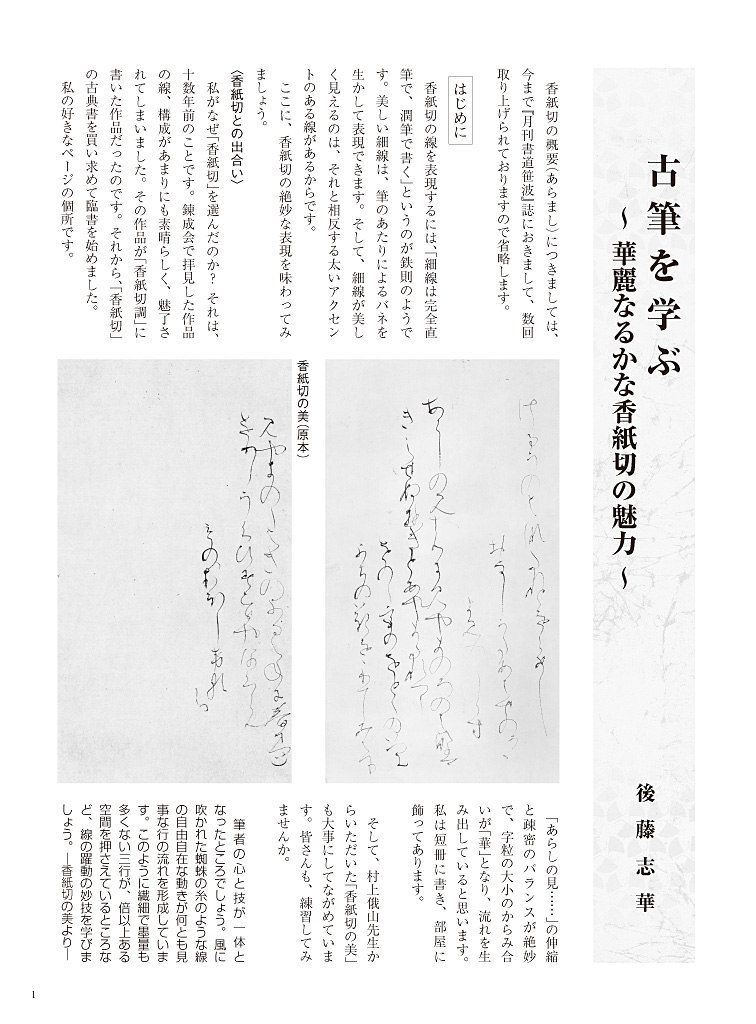 古筆を学ぶ
～華麗なるかな香紙切の魅力～
後藤志華
香紙切の概要（あらまし）につきましては、
今まで『月刊書道笹波』誌におきまして、数回
取り上げられておりますので省略します。
はじめに
香紙切の線を表現するには、『細線は完全直
筆で、潤筆で書く』というのが鉄則のようで
す。美しい細線は、筆のあたりによるバネを
生かして表現できます。そして、細線が美し
く見えるのは、それと相反する太いアクセン
トのある線があるからです。
ここに、香紙切の絶妙な表現を味わってみ
ましょう。
〈香紙切との出合い〉
私がなぜ「香紙切」を選んだのか？ それは、
十数年前のことです。錬成会で拝見した作品
の線、構成があまりにも素晴らしく、魅了さ
れてしまいました。その作品が「香紙切調」に
書いた作品だったのです。それから、「香紙切」
の古典書を買い求めて臨書を始めました。
私の好きなページの個所です。
香紙切の美（原本）
「あらしの見……」の伸縮
と疎密のバランスが絶妙
で、字粒の大小のからみ合
いが「華」となり、流れを生
み出していると思います。
私は短冊に書き、部屋に
飾ってあります。
そして、村上俄山先生か
らいただいた「香紙切の美」
も大事にしてながめていま
す。皆さんも、練習してみ
ませんか。
筆者の心と技が一体と
なったところでしょう。風に
吹かれた蜘蛛の糸のような線
の自由自在な動きが何とも見
事な行の流れを形成していま
す。このように繊細で墨量も
多くない三行が、倍以上ある
空間を押さえているところな
ど、線の躍動の妙技を学びま
しょう。―香紙切の美より―
1